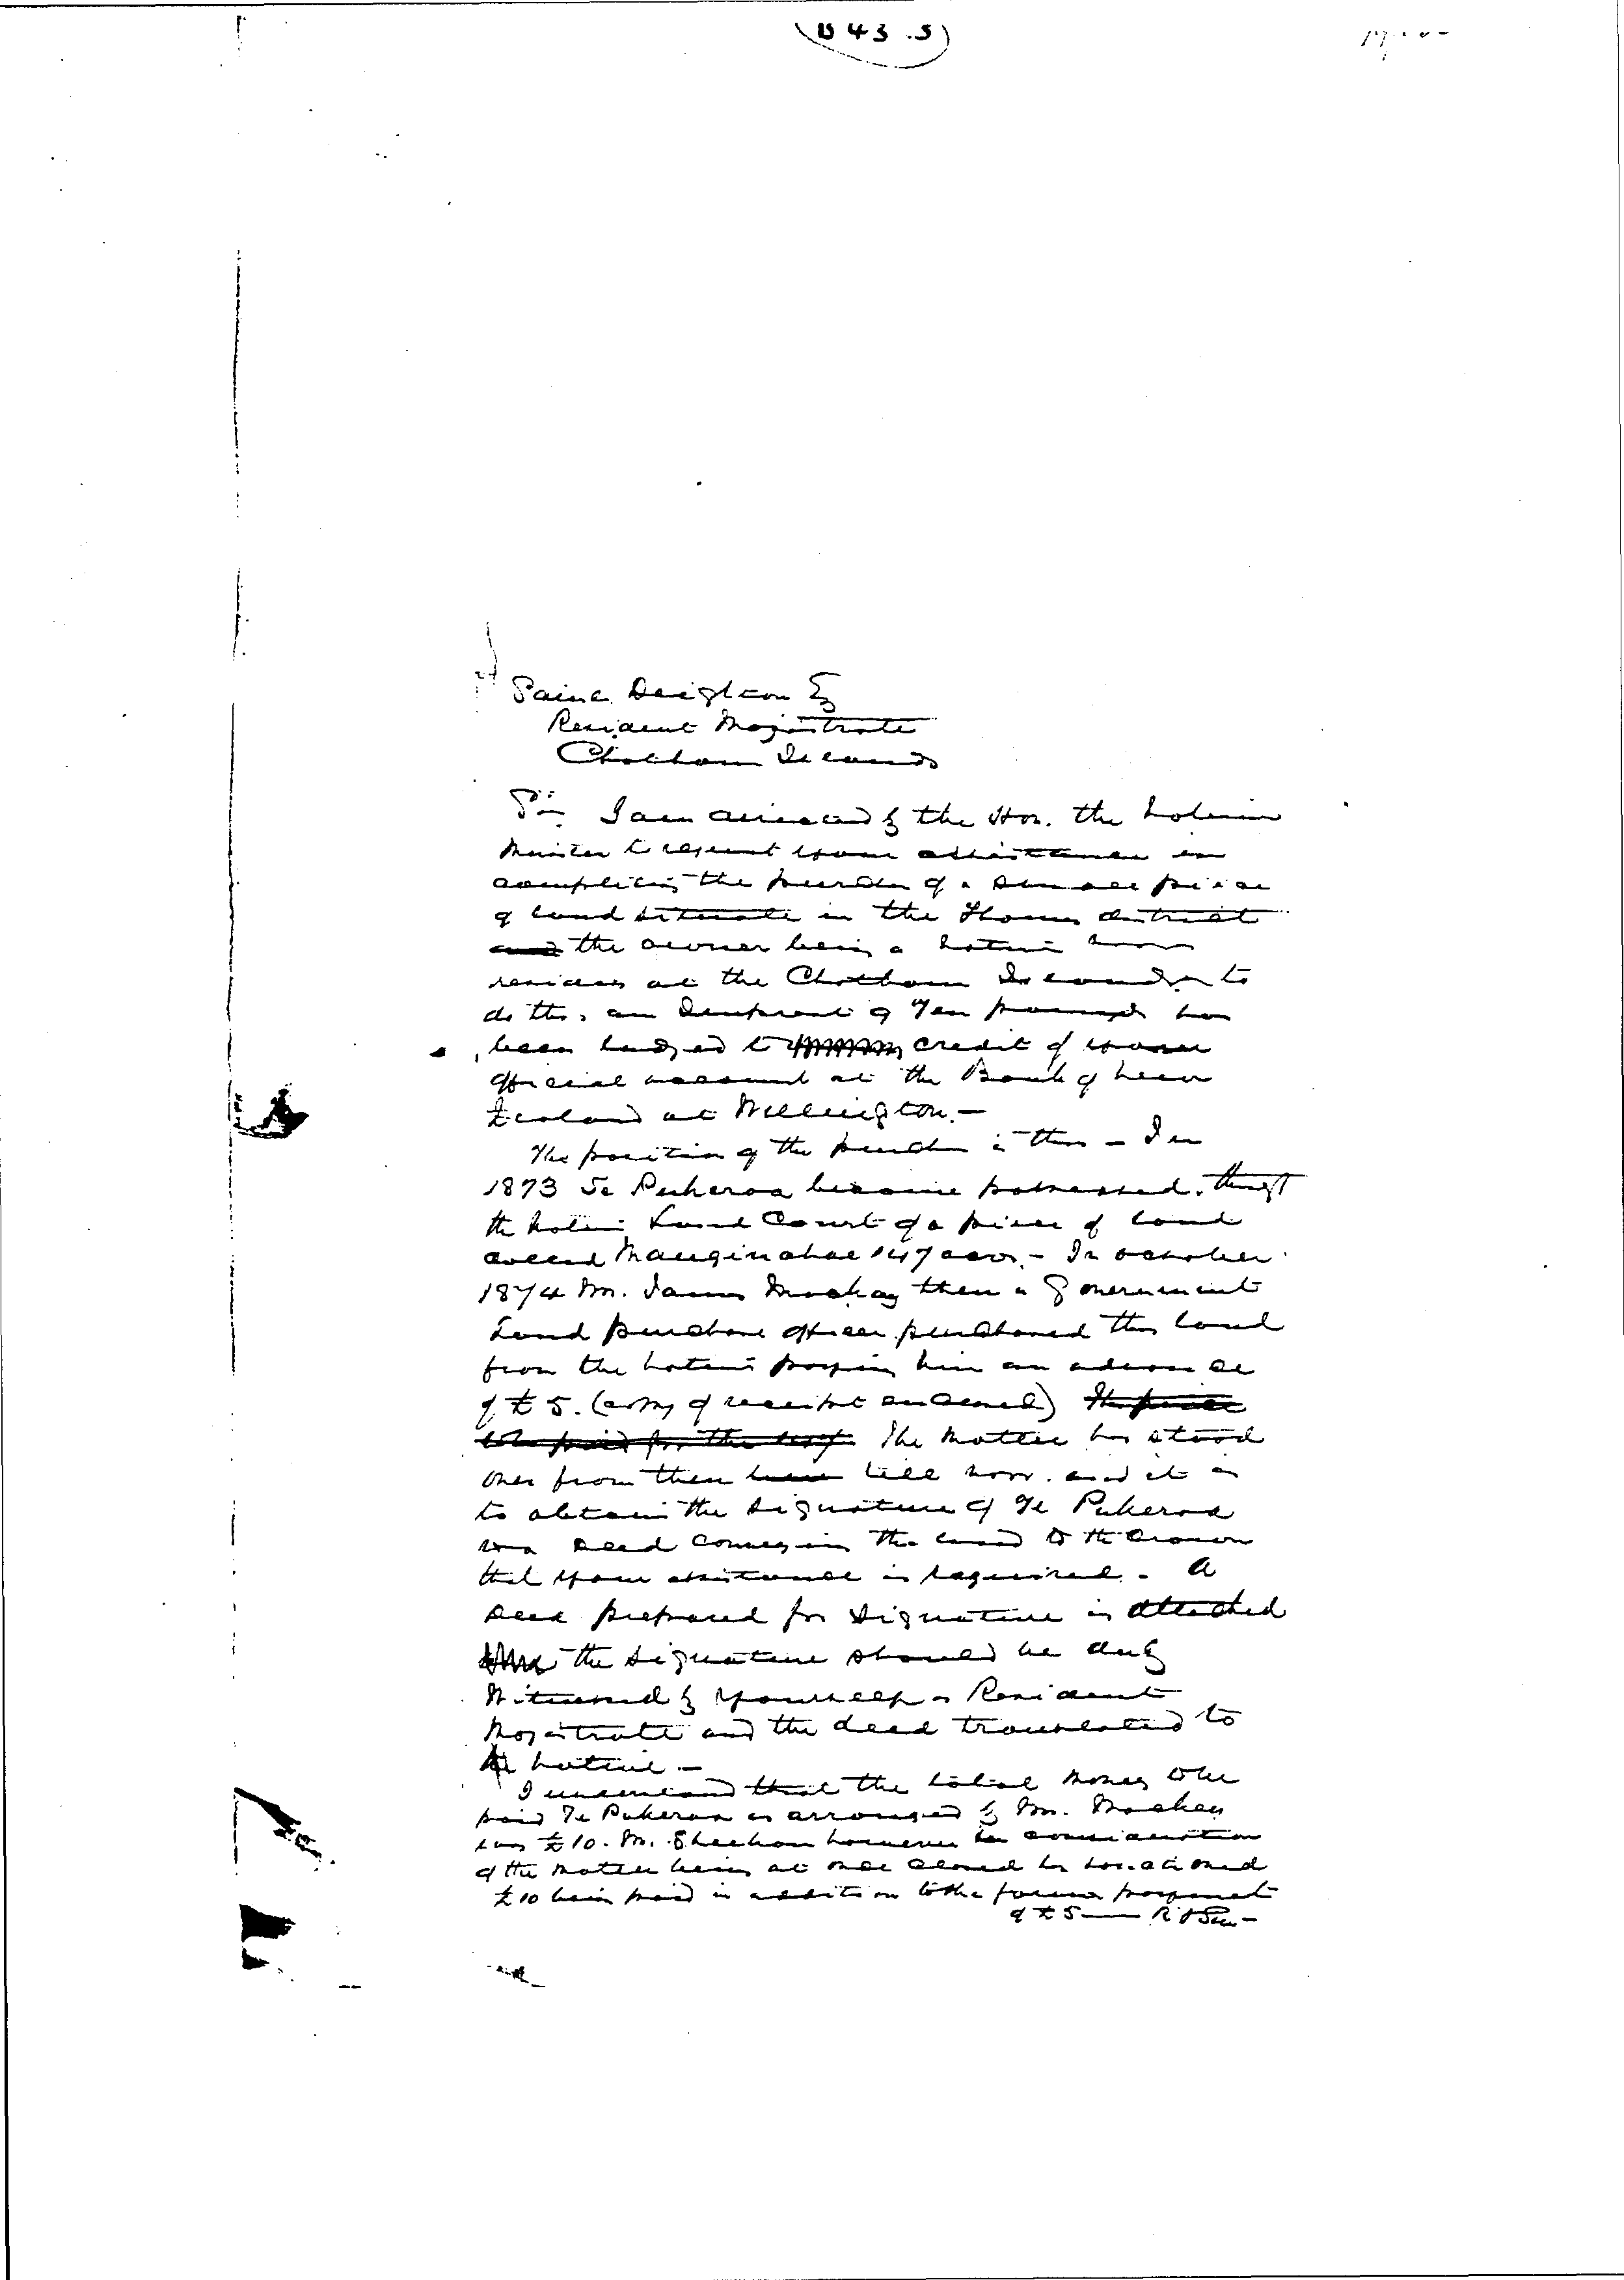 (B 43 . 5)
Deighton Esq
Resident Magistrate
Chatham Islands
Sir I am directed by the Hon. the Native
Minister to request your assistance in
completing the purchase of a small piece
of land situate in the Thames district
the owner being a Native now
residing at the Chatham Islands to
do this an Imprest of Ten pounds has
been lodged to credit of your
Official account at the Bank of New
Zealand at Wellington. —
The position of the purchase is this — In
1873 Te Pukeroa became possessed through
the Native Land Court of a piece of land
called 147 acres — In October
1874 Mr. James Mackay then a Government
Land Purchase Officer purchased this land
from the Native paying him an advance
of £5. (copy of receipt enclosed) The price
to be paid for the The matter has stood
over from then till now. and it is
to obtain the signature of Te Pukeroa
to a Deed conveying the land to the Crown
that your assistance is required. A
Deed prepared for signature is attached
the signature should be duly
Witnessed by yourself as Resident
Magistrate and the deed translated to
the Native —
I understand that the total money to be
paid Te Pukeroa as arranged by Mr. Mackay
was £10. Mr. Sheehan however in consideration
of the matter being at once closed has sanctioned
£10 being paid in addition to the former payment
of £5 —